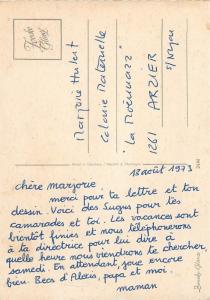 Marjorie Hubert
Colonie Maternelle
1261 ARZIER
s/Nyon
18 août 1973
Chère Marjorie
merci pour ta lettre et ton
dessin. Voici des sugus pour tes
camarades et toi. Les vacances sont
bientôt finies et nous téléphonerons
à ta directrice pour lui dire à
quelle heure nous viendrons te chercher,
samedi. En attendant, joue encore
bien. Becs d'Alexis, papa et moi.
maman